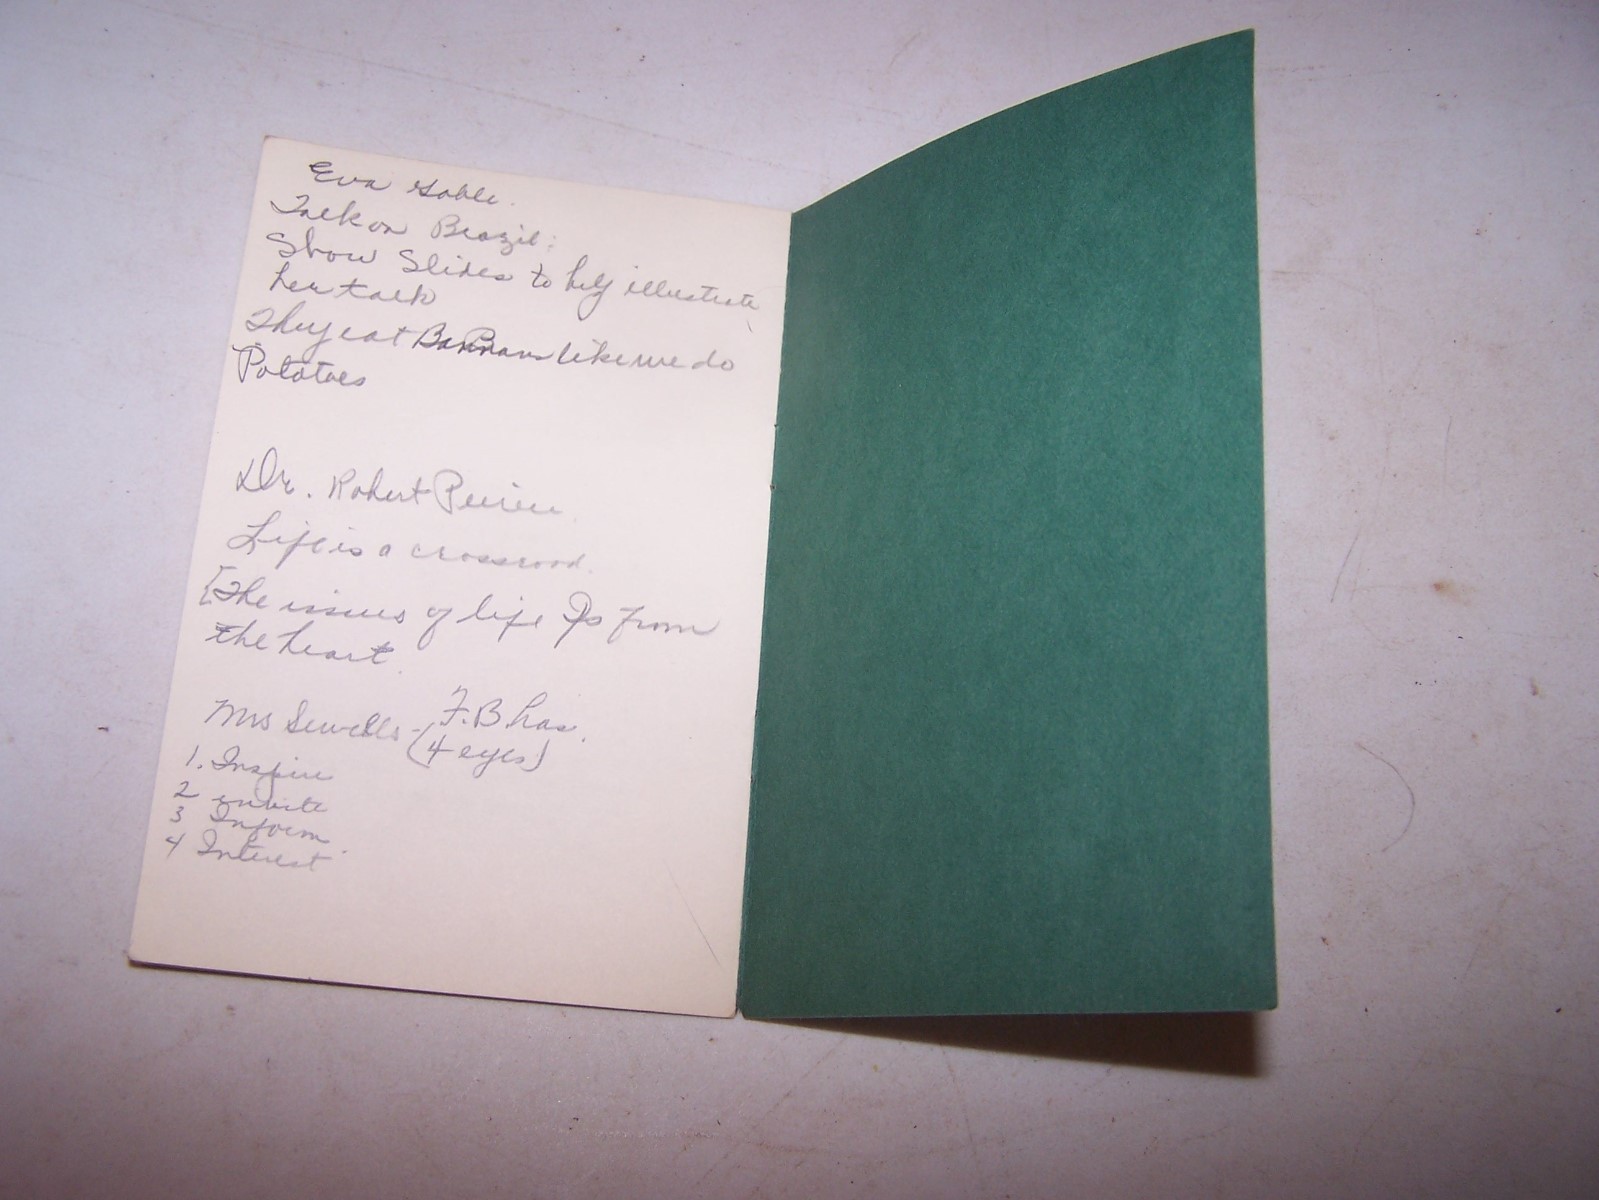 Eva Gable.
Talk on Brazil:
Show Slides to help illustrate
her talk
They eat like we do
Potatoes
Dr. Robert
Life is a crossroad.
[The issues of life Is from
the heart.
Mrs Sewells - F.B has.
(4 eyes)
1. Inspire
2 invite
3 Inform
4 Interest